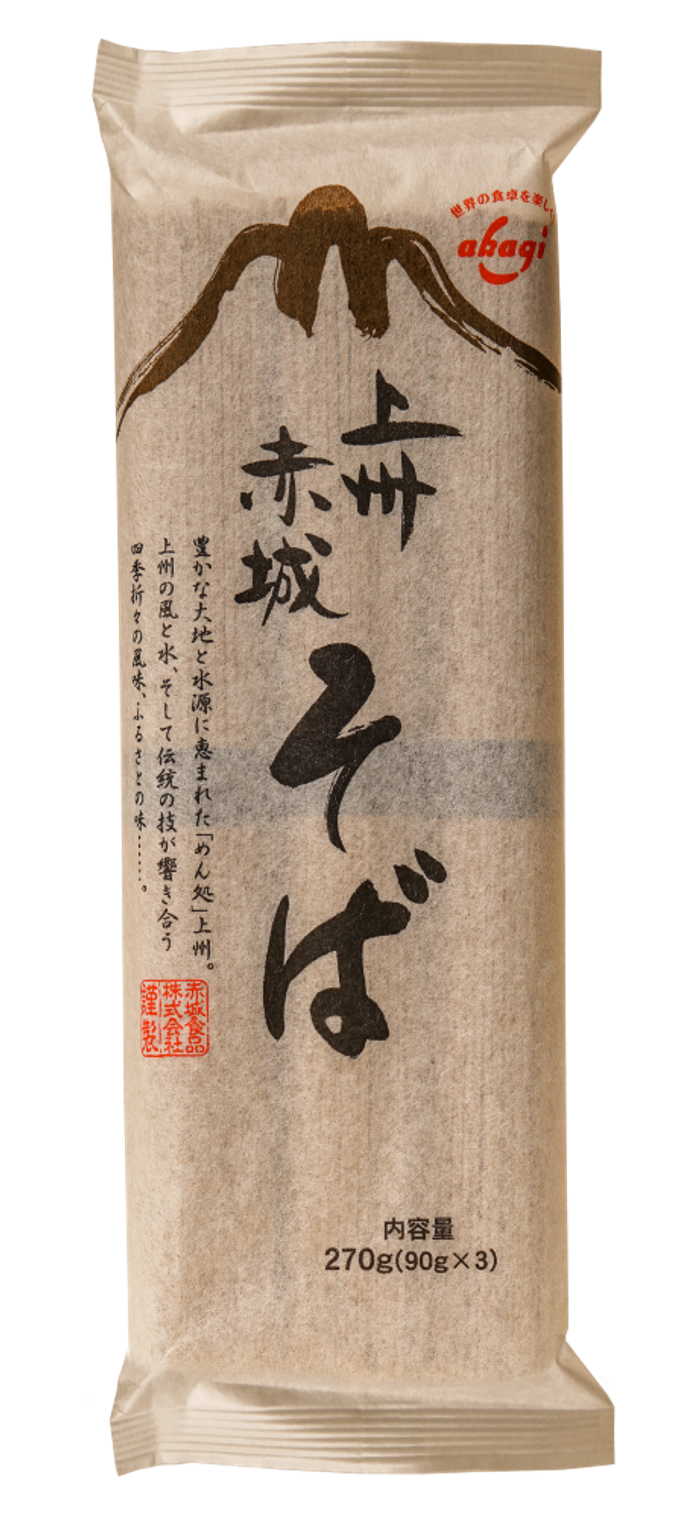 世界の食卓を楽しく
akagi
上州
赤城
そば
豊かな大地と水源に恵まれた「めん処」上州。
上州の風と水、そして伝統の技が響き合う
四季折々の風味、ふるさとの味……。
赤城食品
株式会社
謹製
内容量
270g(90g×3)